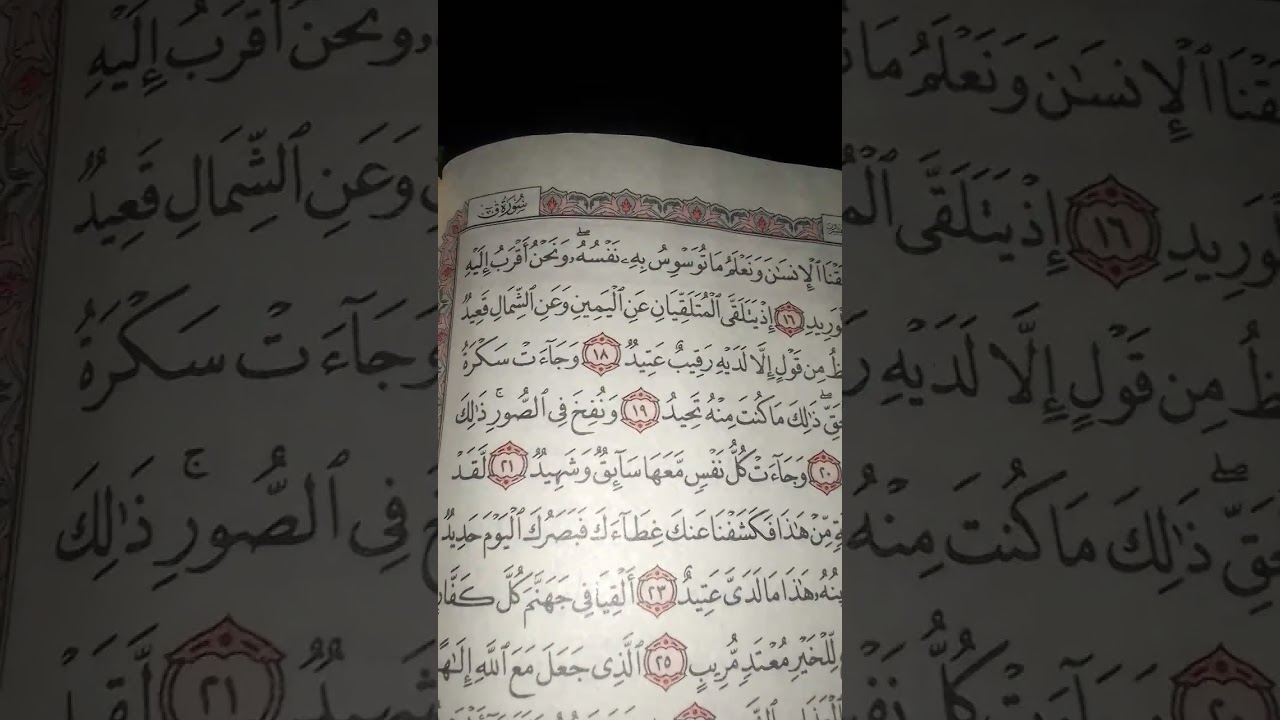 سُورَةُ ق
ـقْنَا ٱلْإِنسَٰنَ وَنَعْلَمُ مَا تُوَسْوِسُ بِهِۦ نَفْسُهُۥ ۖ وَنَحْنُ أَقْرَبُ إِلَيْهِ
ـوَرِيدِ ١٦ إِذْ يَتَلَقَّى ٱلْمُتَلَقِّيَانِ عَنِ ٱلْيَمِينِ وَعَنِ ٱلشِّمَالِ قَعِيدٌ
ـظُ مِن قَوْلٍ إِلَّا لَدَيْهِ رَقِيبٌ عَتِيدٌ ١٨ وَجَآءَتْ سَكْرَةُ
ـحَقِّ ۖ ذَٰلِكَ مَا كُنتَ مِنْهُ تَحِيدُ ١٩ وَنُفِخَ فِى ٱلصُّورِ ۚ ذَٰلِكَ
٢٠ وَجَآءَتْ كُلُّ نَفْسٍ مَّعَهَا سَآئِقٌ وَشَهِيدٌ ٢١ لَّقَدْ
ـةٍ مِّنْ هَٰذَا فَكَشَفْنَا عَنكَ غِطَآءَكَ فَبَصَرُكَ ٱلْيَوْمَ حَدِيدٌ
ـينُهُۥ هَٰذَا مَا لَدَىَّ عَتِيدٌ ٢٣ أَلْقِيَا فِى جَهَنَّمَ كُلَّ كَفَّارٍ
لِّلْخَيْرِ مُعْتَدٍ مُّرِيبٍ ٢٥ ٱلَّذِى جَعَلَ مَعَ ٱللَّهِ إِلَٰهًا